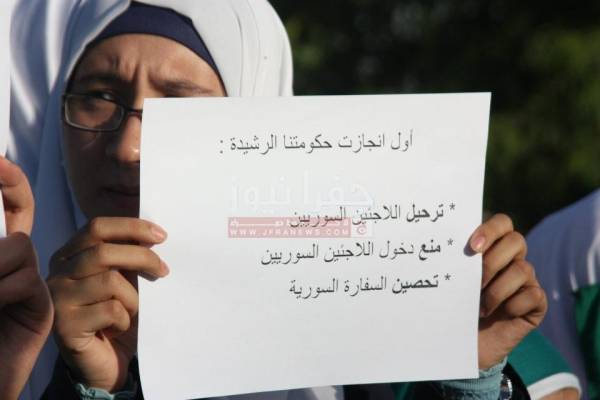 أول انجازت حكومتنا الرشيدة :
* ترحيل اللاجئين السوريين
* منع دخول اللاجئين السوريين
* تحصين السفارة السورية
جفرا نيوز
WWW.JFRANEWS.COM